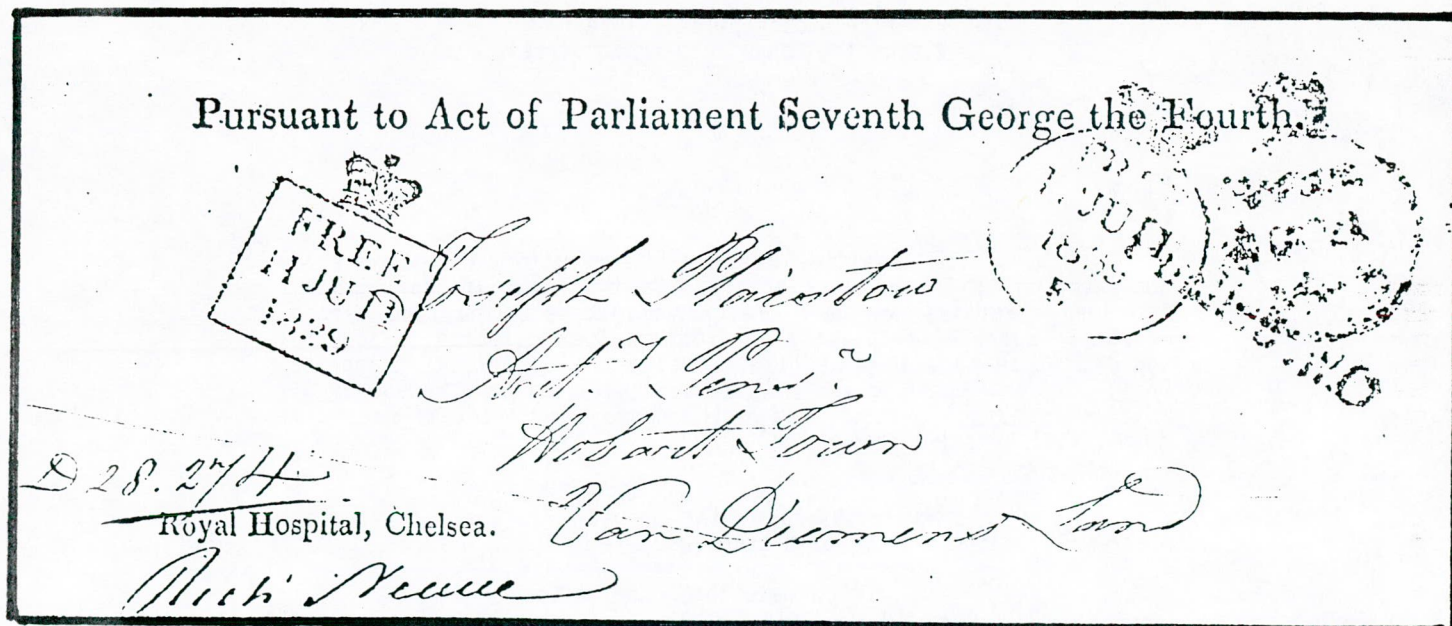 Pursuant to Act of Parliament Seventh George the Fourth.
FREE
11 JUN
1839
JU
1839
Joseph Plaistow
Penr.
Hobart Town
Van Diemens Land
D 28.274
Royal Hospital, Chelsea.
Richd